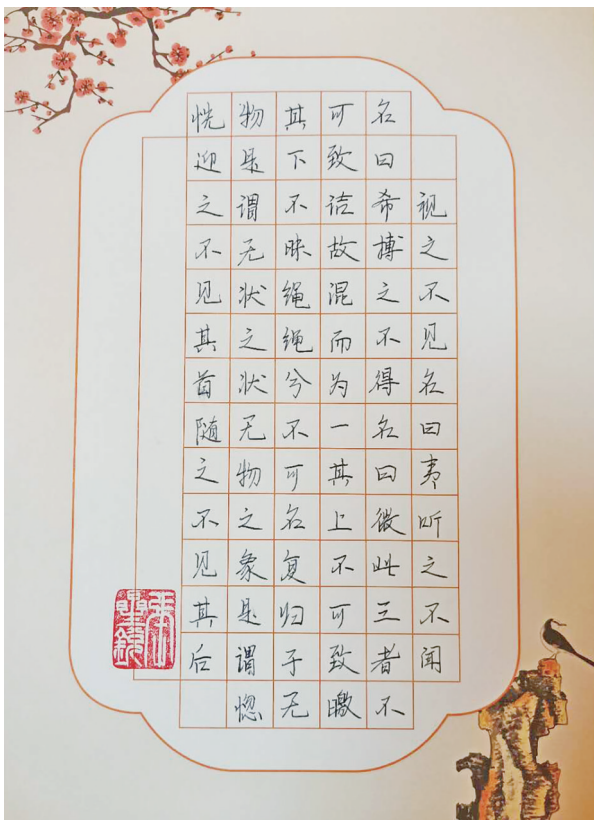 视之不见名曰夷听之不闻
名曰希搏之不得名曰微此三者不
可致诘故混而为一其上不可致曒
其下不昧绳绳兮不可名复归于无
物是谓无状之状无物之象是谓惚
恍迎之不见其首随之不见其后